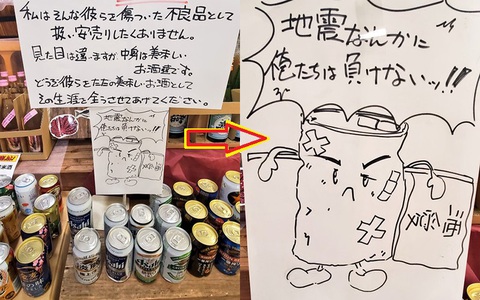 私はそんな彼らを傷ついた不良品として
扱い安売りしたくありません。
見た目は違いますが中身は美味しい
お酒達です。
どうか彼らをただの美味しいお酒として
その生涯を全うさせてあげてください。
地震なんかに
俺たちは負けないッ!!
地震なんかに
俺たちは負けないッ!!